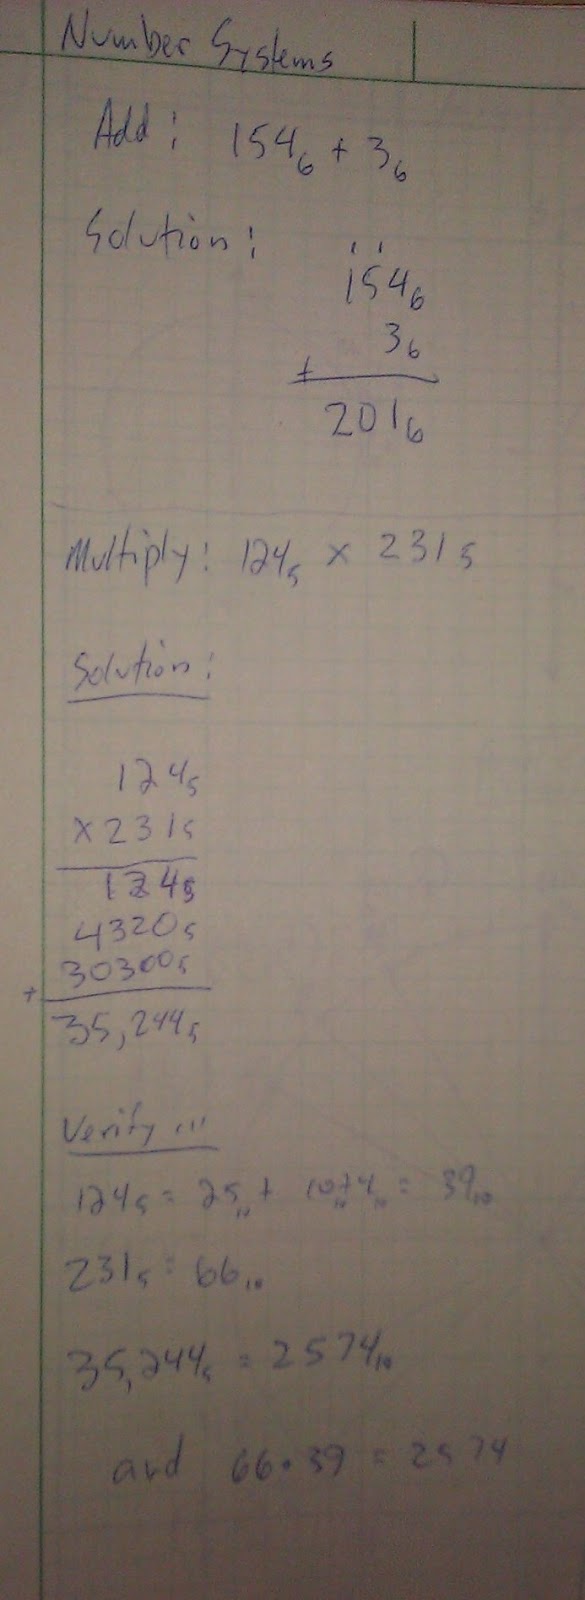 Number Systems
Add: 154₆ + 3₆
Solution:
1 1
154₆
3₆
+
201₆
Multiply: 124₅ × 231₅
Solution:
124₅
×231₅
124₅
4320₅
30300₅
+
35,244₅
Verify...
124₅ = 25₁₀ + 10₁₀+4₁₀ = 39₁₀
231₅ = 66₁₀
35,244₅ = 2574₁₀
and 66·39 = 2574